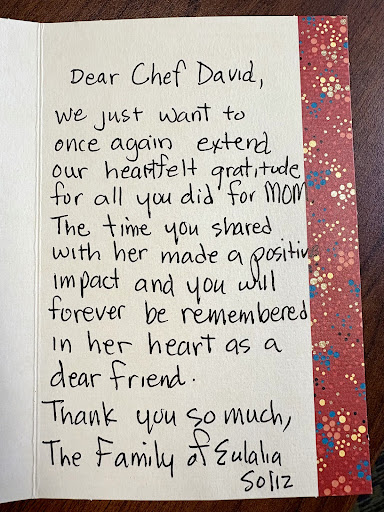 Dear Chef David,
we just want to
once again extend
our heartfelt gratitude
for all you did for MOM
The time you shared
with her made a positive
impact and you will
forever be remembered
in her heart as a
dear friend.
Thank you so much,
The Family of Eulalia
Soliz